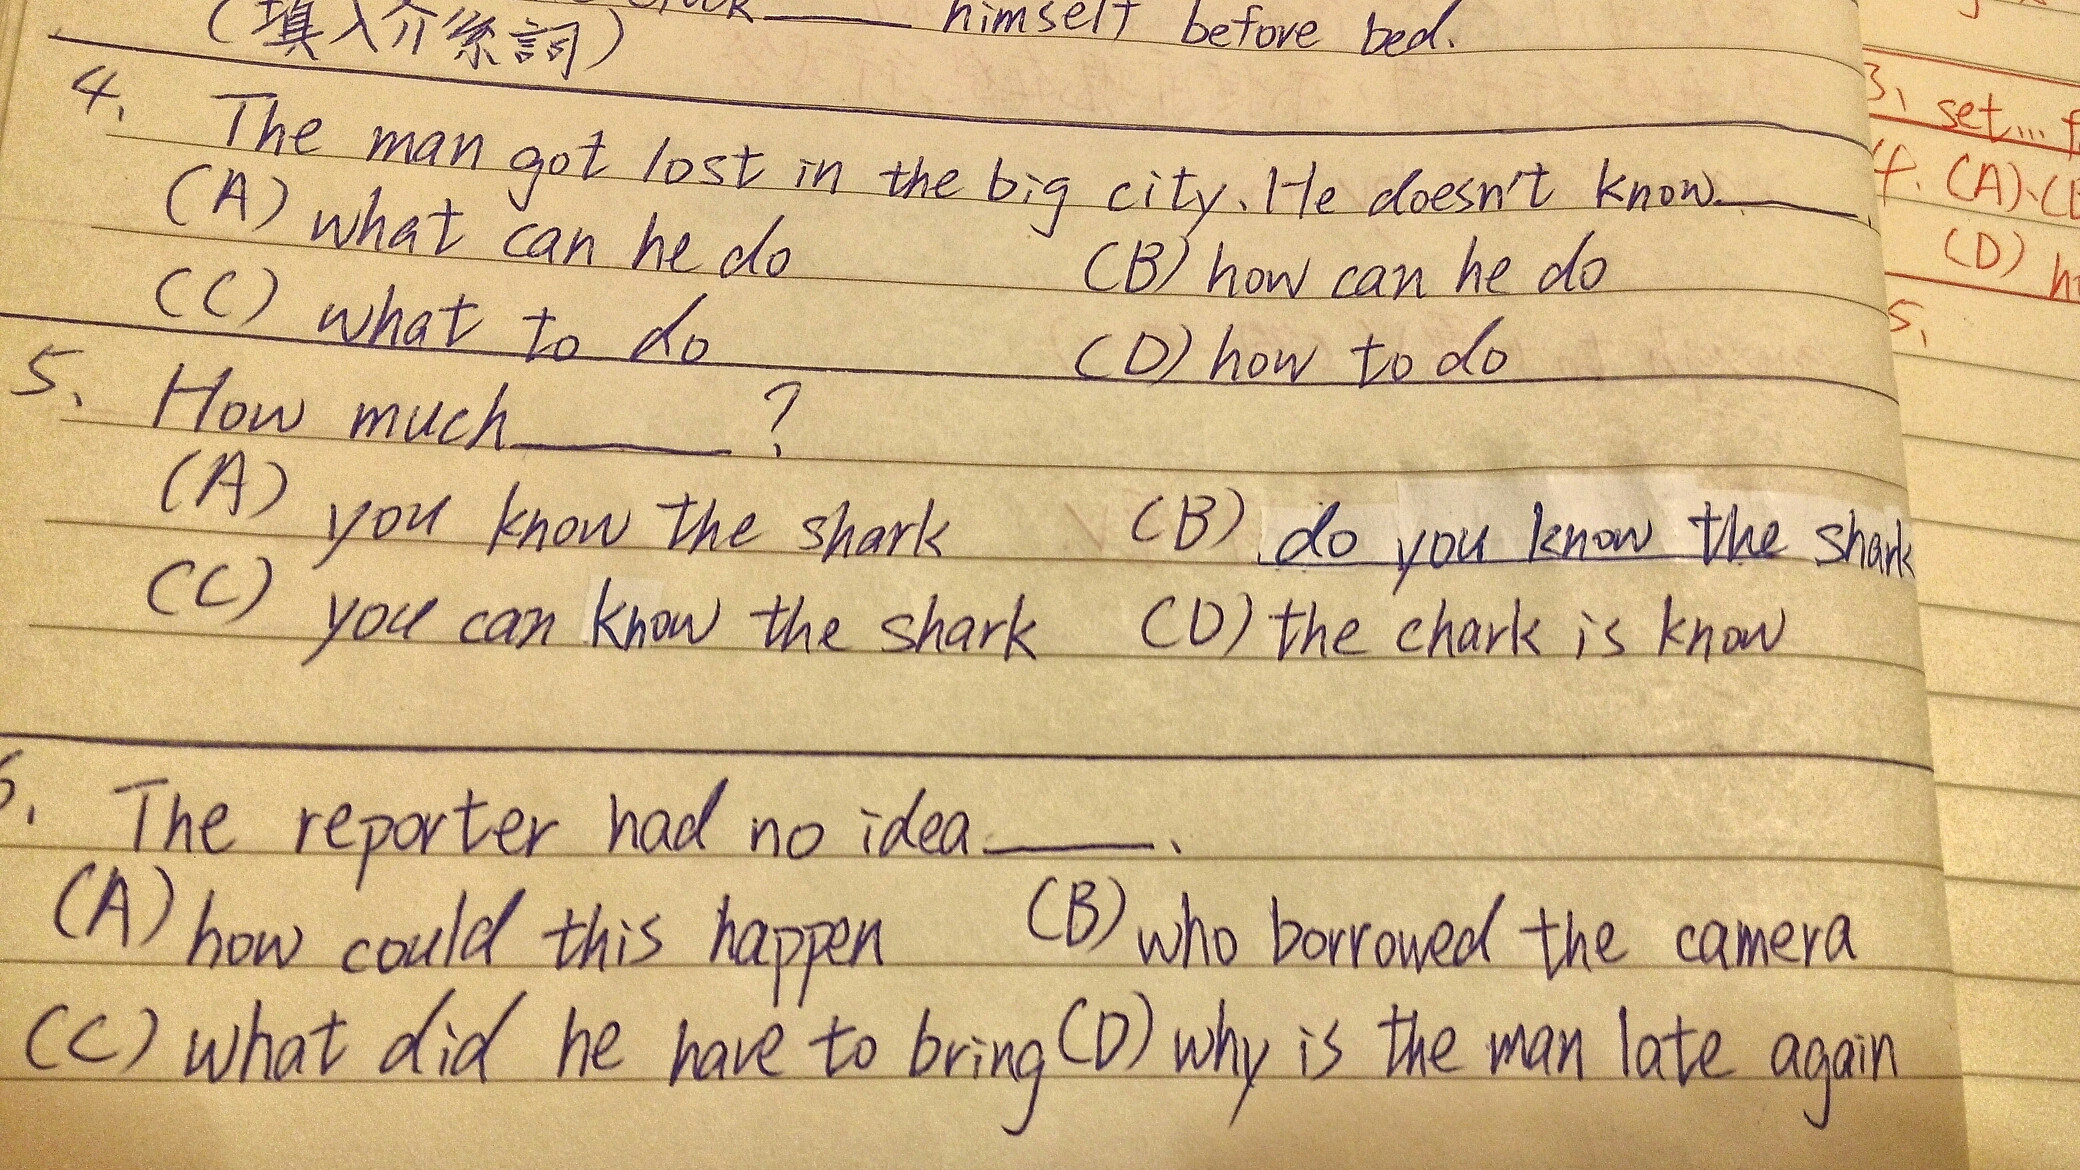 himself before bed.
(填入介系詞)
4. The man got lost in the big city. He doesn't know ______.
(A) what can he do (B) how can he do
(C) what to do (D) how to do
5. How much ______ ?
(A) you know the shark (B) do you know the shark
(C) you can know the shark (D) the chark is know
6. The reporter had no idea ______.
(A) how could this happen (B) who borrowed the camera
(C) what did he have to bring (D) why is the man late again
3. set...
4. (A)、(
(D)
5.